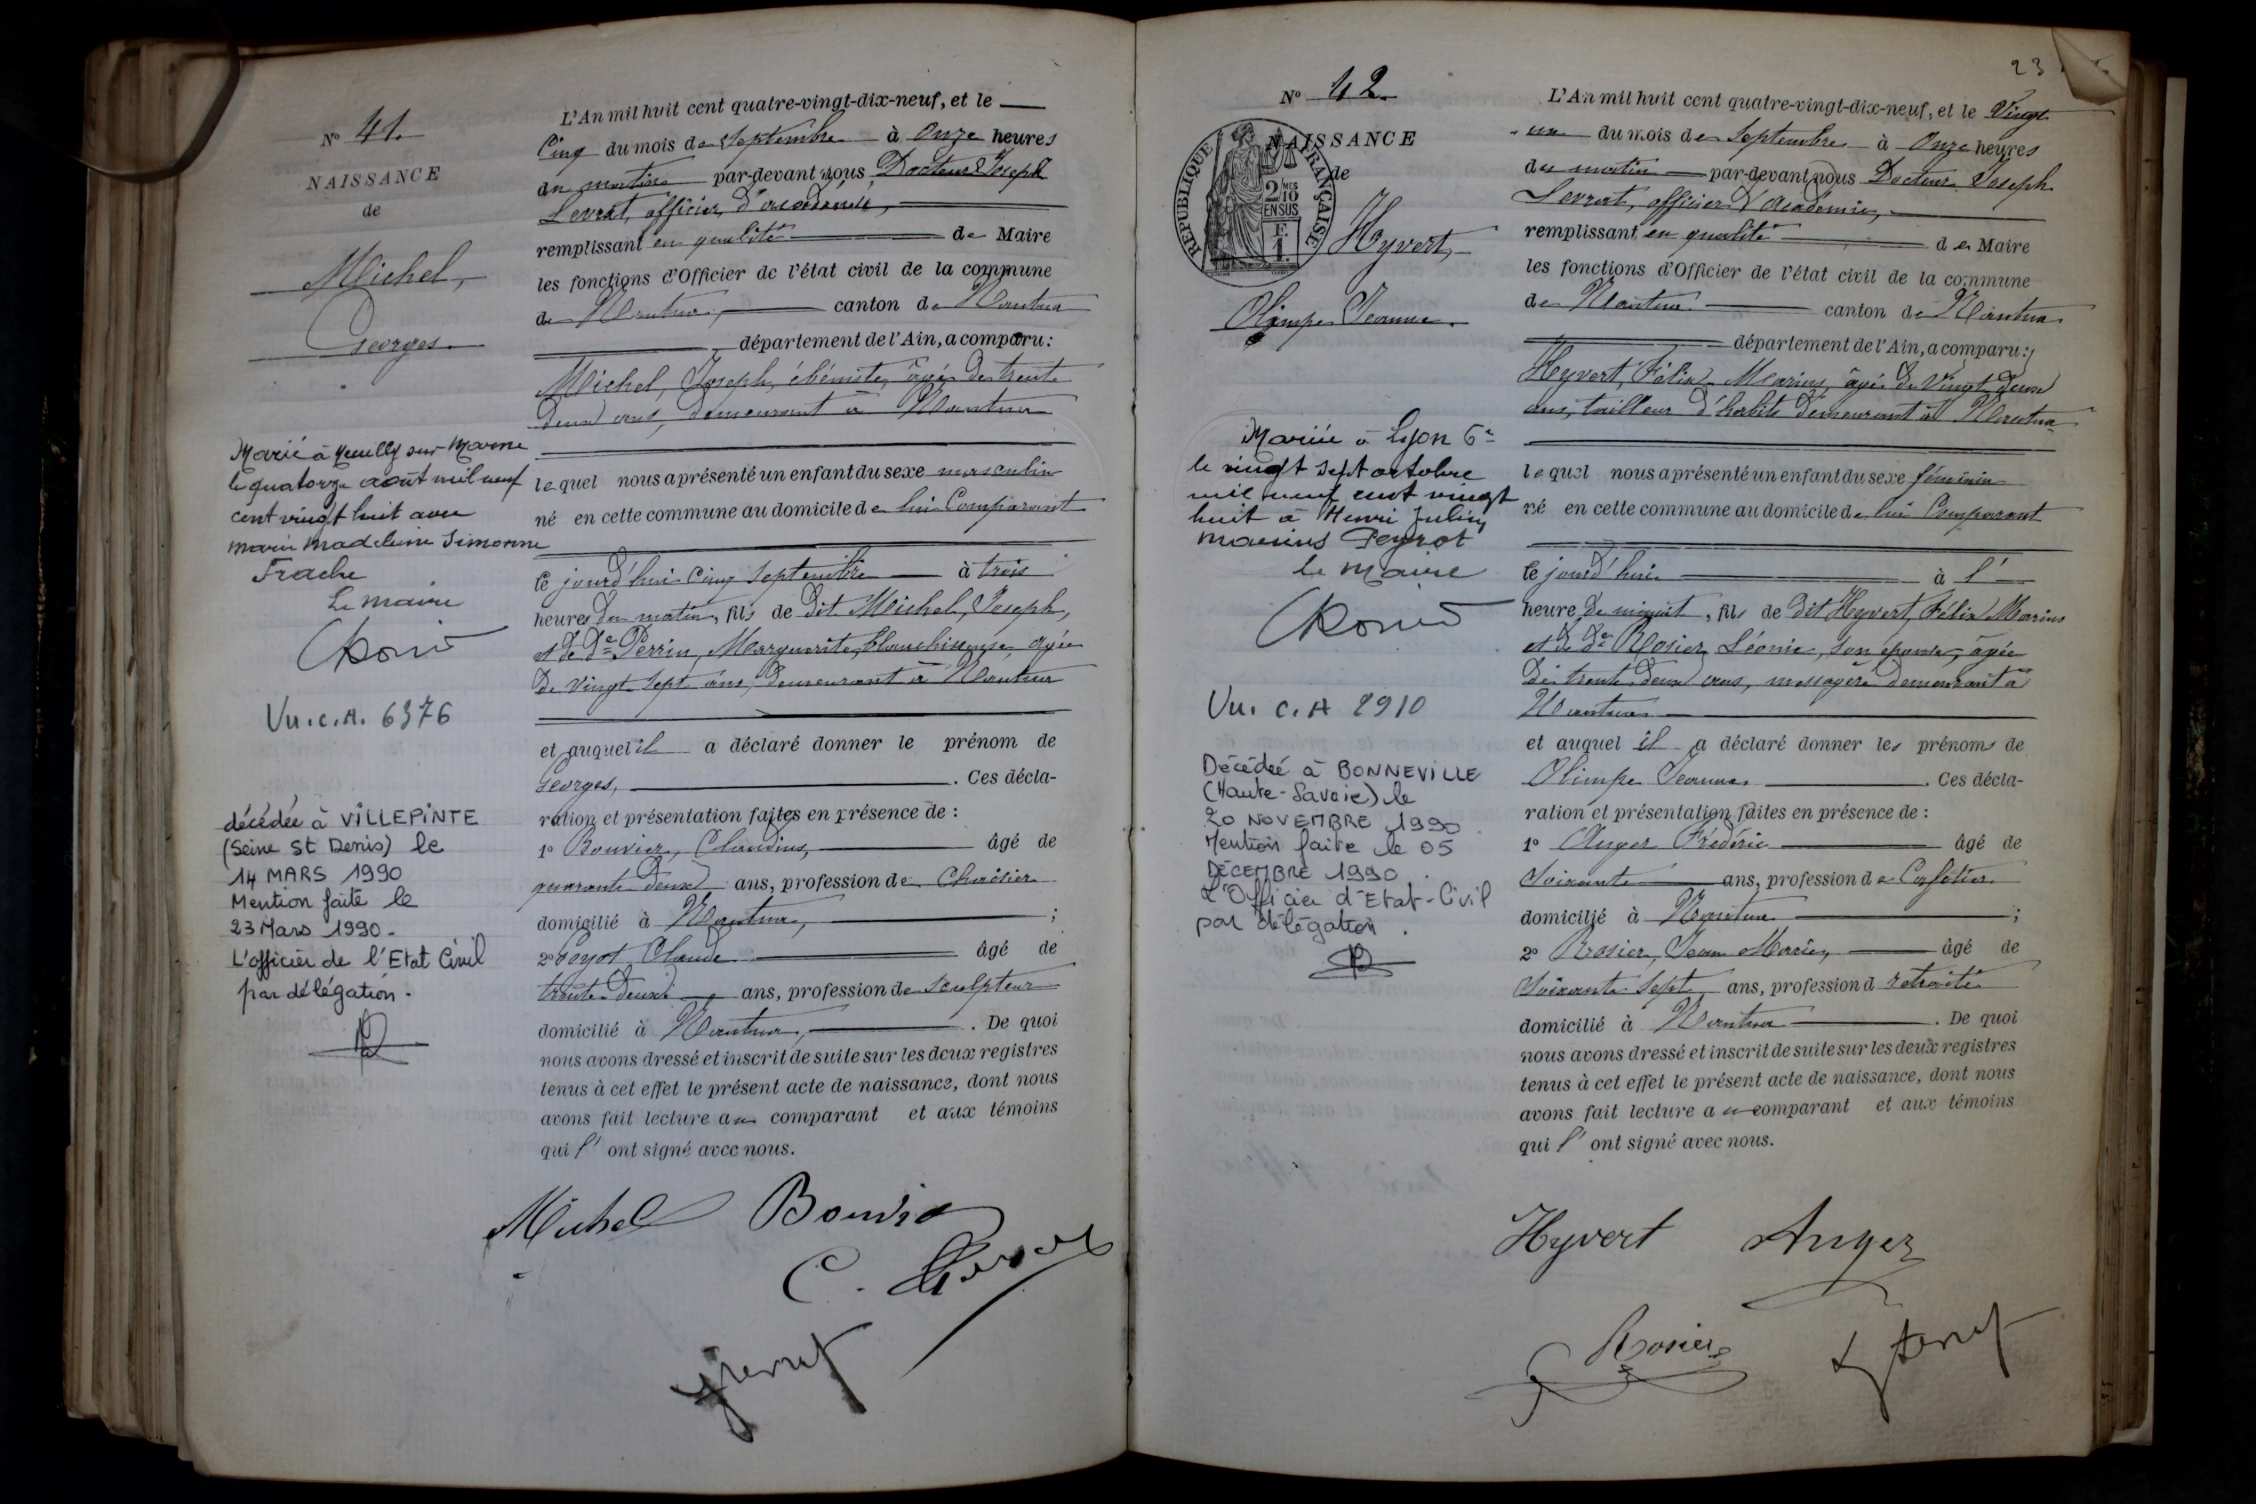 N° 41.
NAISSANCE
de
Michel,
Georges.
Marié à Neuilly sur Marne
le quatorze août mil neuf
cent vingt huit avec
Marie Madeleine Simonne
Frache
Le Maire
Vu. C. A. 6376
décédée à VILLEPINTE
(Seine St Denis) le
14 MARS 1990
Mention faite le
23 Mars 1990.
L'officier de l'Etat Civil
par délégation.
L'An mil huit cent quatre-vingt-dix-neuf, et le
Cinq du mois de Septembre à Onze heures
du matin par-devant nous Docteur Joseph
Levrat, officier d'académie,
remplissant en qualité de Maire
les fonctions d'Officier de l'état civil de la commune
de Nantua, canton de Nantua
département de l'Ain, a comparu:
Michel, Joseph, ébéniste, âgé de trente
deux ans, demeurant à Nantua
lequel nous a présenté un enfant du sexe masculin
né en cette commune au domicile de lui Comparant
ce jourd'hui cinq Septembre à trois
heures du matin, fils de dit Michel, Joseph,
et de De Perrin, Marguerite, blanchisseuse, âgée
de vingt sept ans, demeurant à Nantua
et auquel il a déclaré donner le prénom de
Georges, . Ces décla-
ration et présentation faites en présence de :
1° Bouvier, Claudius, âgé de
quarante deux ans, profession de Chaisier
domicilié à Nantua, ;
2° Poyot Claude âgé de
trente deux ans, profession de sculpteur
domicilié à Nantua, . De quoi
nous avons dressé et inscrit de suite sur les deux registres
tenus à cet effet le présent acte de naissance, dont nous
avons fait lecture au comparant et aux témoins
qui l' ont signé avec nous.
Michel Bouvier
23
N° 42
NAISSANCE
de
RÉPUBLIQUE FRANÇAISE
2 MES
10
EN SUS
F.
1.
Hyvert,
Olimpe Jeanne.
Mariée à Lyon 6e
le vingt sept octobre
mil neuf cent vingt
huit à Henri Julien
Marius Peyrot
le Maire
Vu. C. A 2910
Décédée à BONNEVILLE
(Haute-Savoie) le
20 NOVEMBRE 1990
Mention faite le 05
DÉCEMBRE 1990.
L'Officier d'Etat-Civil
par délégation.
L'An mil huit cent quatre-vingt-dix-neuf, et le Vingt
un du mois de Septembre à Onze heures
du matin par-devant nous Docteur Joseph
Levrat, officier d'académie,
remplissant en qualité de Maire
les fonctions d'Officier de l'état civil de la commune
de Nantua canton de Nantua
département de l'Ain, a comparu:
Hyvert, Félix Marius, âgé de vingt deux
ans, tailleur d'habits demeurant à Nantua
lequel nous a présenté un enfant du sexe féminin
né en cette commune au domicile de lui Comparant
ce jourd'hui à l'
heure de minuit, fils de dit Hyvert, Félix Marius
et de De Rosier Léonie, son épouse, âgée
de trente deux ans, ménagère demeurant à
Nantua
et auquel il a déclaré donner les prénoms de
Olimpe Jeanne. . Ces décla-
ration et présentation faites en présence de :
1° Auger Frédéric âgé de
Soixante ans, profession de Cafetier
domicilié à Nantua ;
2° Rosier, Jean Marie, âgé de
Soixante sept ans, profession d retraité
domicilié à Nantua . De quoi
nous avons dressé et inscrit de suite sur les deux registres
tenus à cet effet le présent acte de naissance, dont nous
avons fait lecture au comparant et aux témoins
qui l' ont signé avec nous.
Hyvert Auger
Rosier